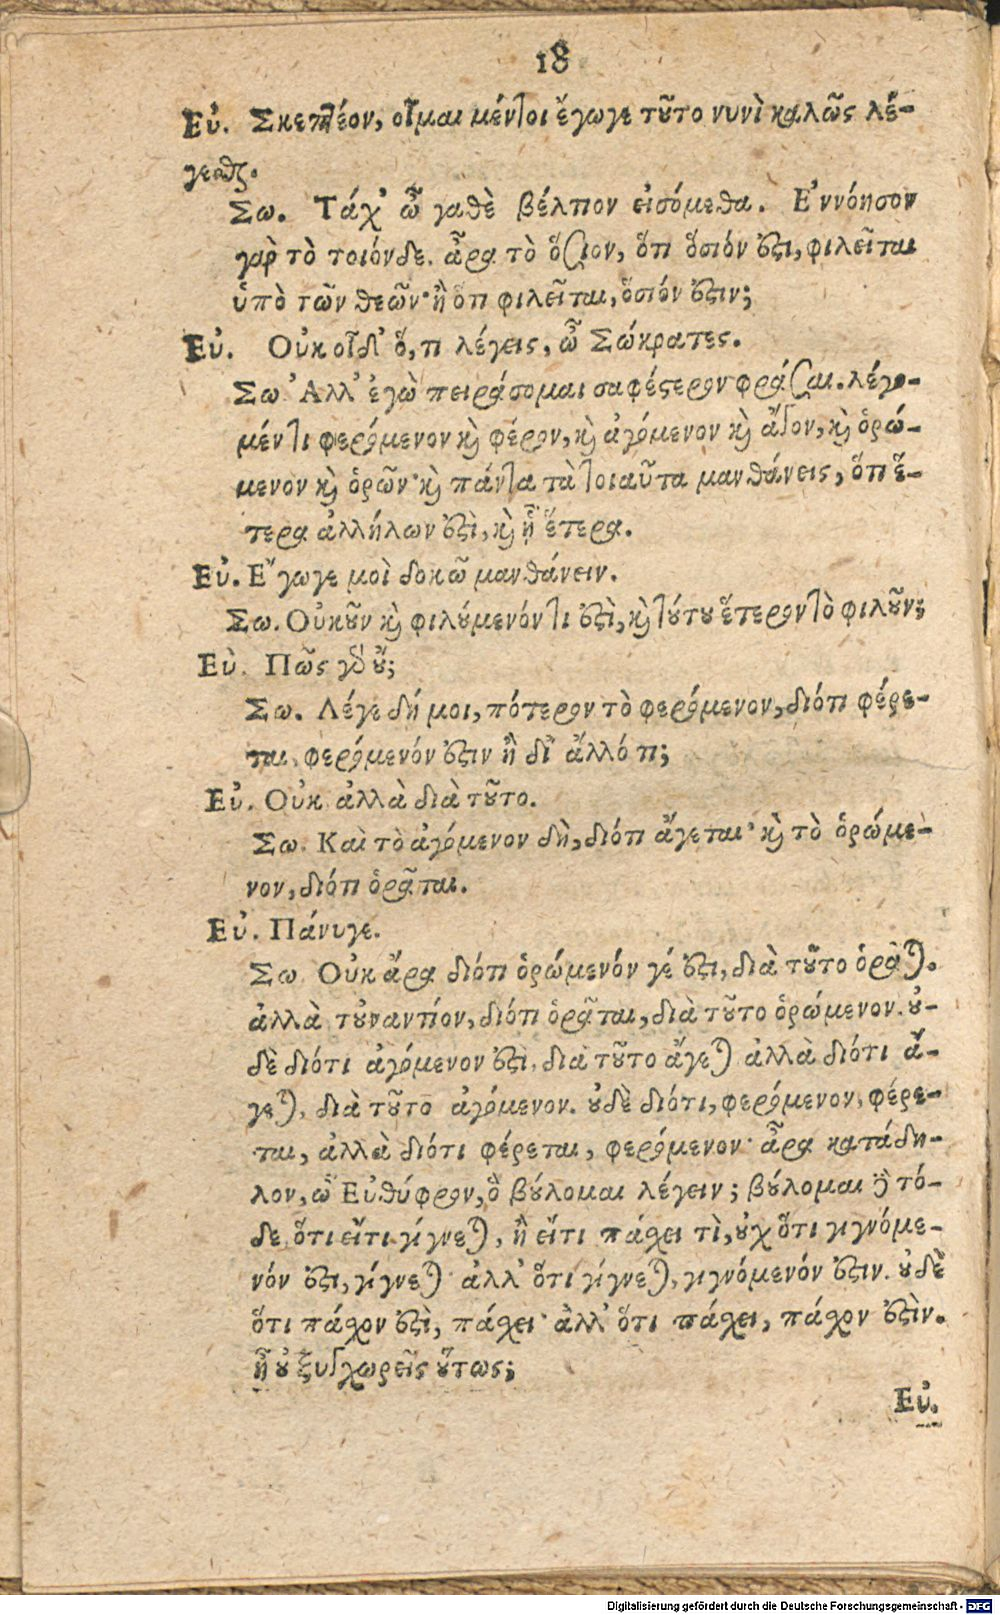 18
Εὐ. Σκεπτέον, οἶμαι μέντοι ἔγωγε τοῦτο νυνὶ καλῶς λέ-
γεσθαι.
Σω. Τάχ' ὦ γαθὲ βέλτιον εἰσόμεθα. Ἐννόησον
γὰρ τὸ τοιόνδε. ἆρα τὸ ὅσιον, ὅτι ὅσιόν ἐστι, φιλεῖται
ὑπὸ τῶν θεῶν· ἢ ὅτι φιλεῖται, ὅσιόν ἐστιν;
Εὐ. Οὐκ οἶδ' ὅ,τι λέγεις, ὦ Σώκρατες.
Σω Ἀλλ' ἐγὼ πειράσομαι σαφέστερον φράσαι. λέγο-
μέν τι φερόμενον καὶ φέρον, καὶ ἀγόμενον καὶ ἄγον, καὶ ὁρώ-
μενον καὶ ὁρῶν· καὶ πάντα τὰ τοιαῦτα μανθάνεις, ὅτι ἕ-
τερα ἀλλήλων ἐστὶ, καὶ ᾗ ἕτερα.
Εὐ. Ἔγωγε μοὶ δοκῶ μανθάνειν.
Σω. Οὐκοῦν καὶ φιλούμενόν τι ἐστὶ, καὶ τούτου ἕτερον τὸ φιλοῦν;
Εὐ. Πῶς γὰρ οὔ;
Σω. Λέγε δή μοι, πότερον τὸ φερόμενον, διότι φέρε-
ται, φερόμενόν ἐστιν ἢ δι' ἄλλό τι;
Εὐ. Οὐκ ἀλλὰ διὰ τοῦτο.
Σω. Καὶ τὸ ἀγόμενον δὴ, διότι ἄγεται· καὶ τὸ ὁρώμε-
νον, διότι ὁρᾶται.
Εὐ. Πάνυγε.
Σω Οὐκ ἄρα διότι ὁρώμενόν γέ ἐστι, διὰ τοῦτο ὁρᾶται.
ἀλλὰ τοὐναντίον, διότι ὁρᾶται, διὰ τοῦτο ὁρώμενον. οὐ-
δὲ διότι ἀγόμενον ἐστὶ, διὰ τοῦτο ἄγεται ἀλλὰ διότι ἄ-
γεται, διὰ τοῦτο ἀγόμενον. οὐδὲ διότι, φερόμενον, φέρε-
ται, ἀλλὰ διότι φέρεται, φερόμενον· ἆρα κατάδη-
λον, ὦ Εὐθύφρον, ὃ βούλομαι λέγειν; βούλομαι δὲ τό-
δε ὅτι εἴτι γίγνεται, ἢ εἴτι πάσχει τὶ, οὐχ ὅτι γιγνόμε-
νόν ἐστι, γίγνεται ἀλλ' ὅτι γίγνεται, γιγνόμενόν ἐστιν. οὐδὲ
ὅτι πάσχον ἐστὶ, πάσχει· ἀλλ' ὅτι πάσχει, πάσχον ἐστὶν.
ἢ οὐ ξυγχωρεῖς οὕτως;
Εὐ.
Digitalisierung gefördert durch die Deutsche Forschungsgemeinschaft - DFG